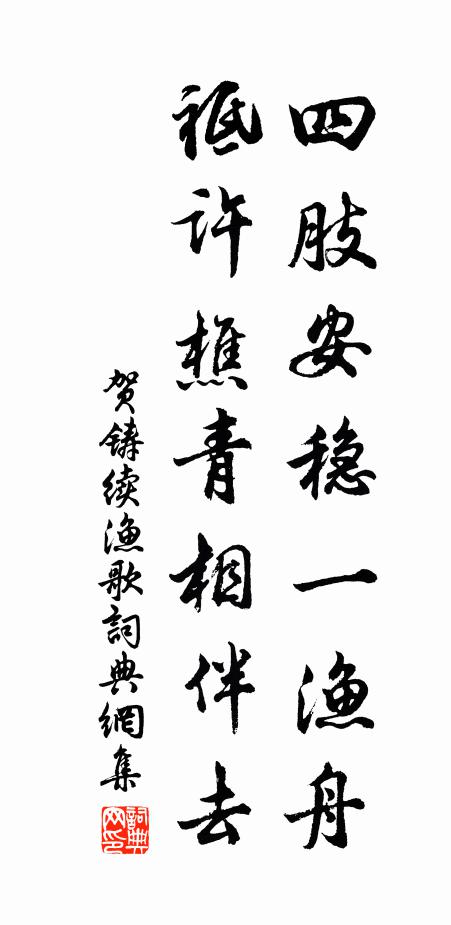 四肢安稳一渔舟
祗许樵青相伴去
贺铸续渔歌詞典網集
詞典网印